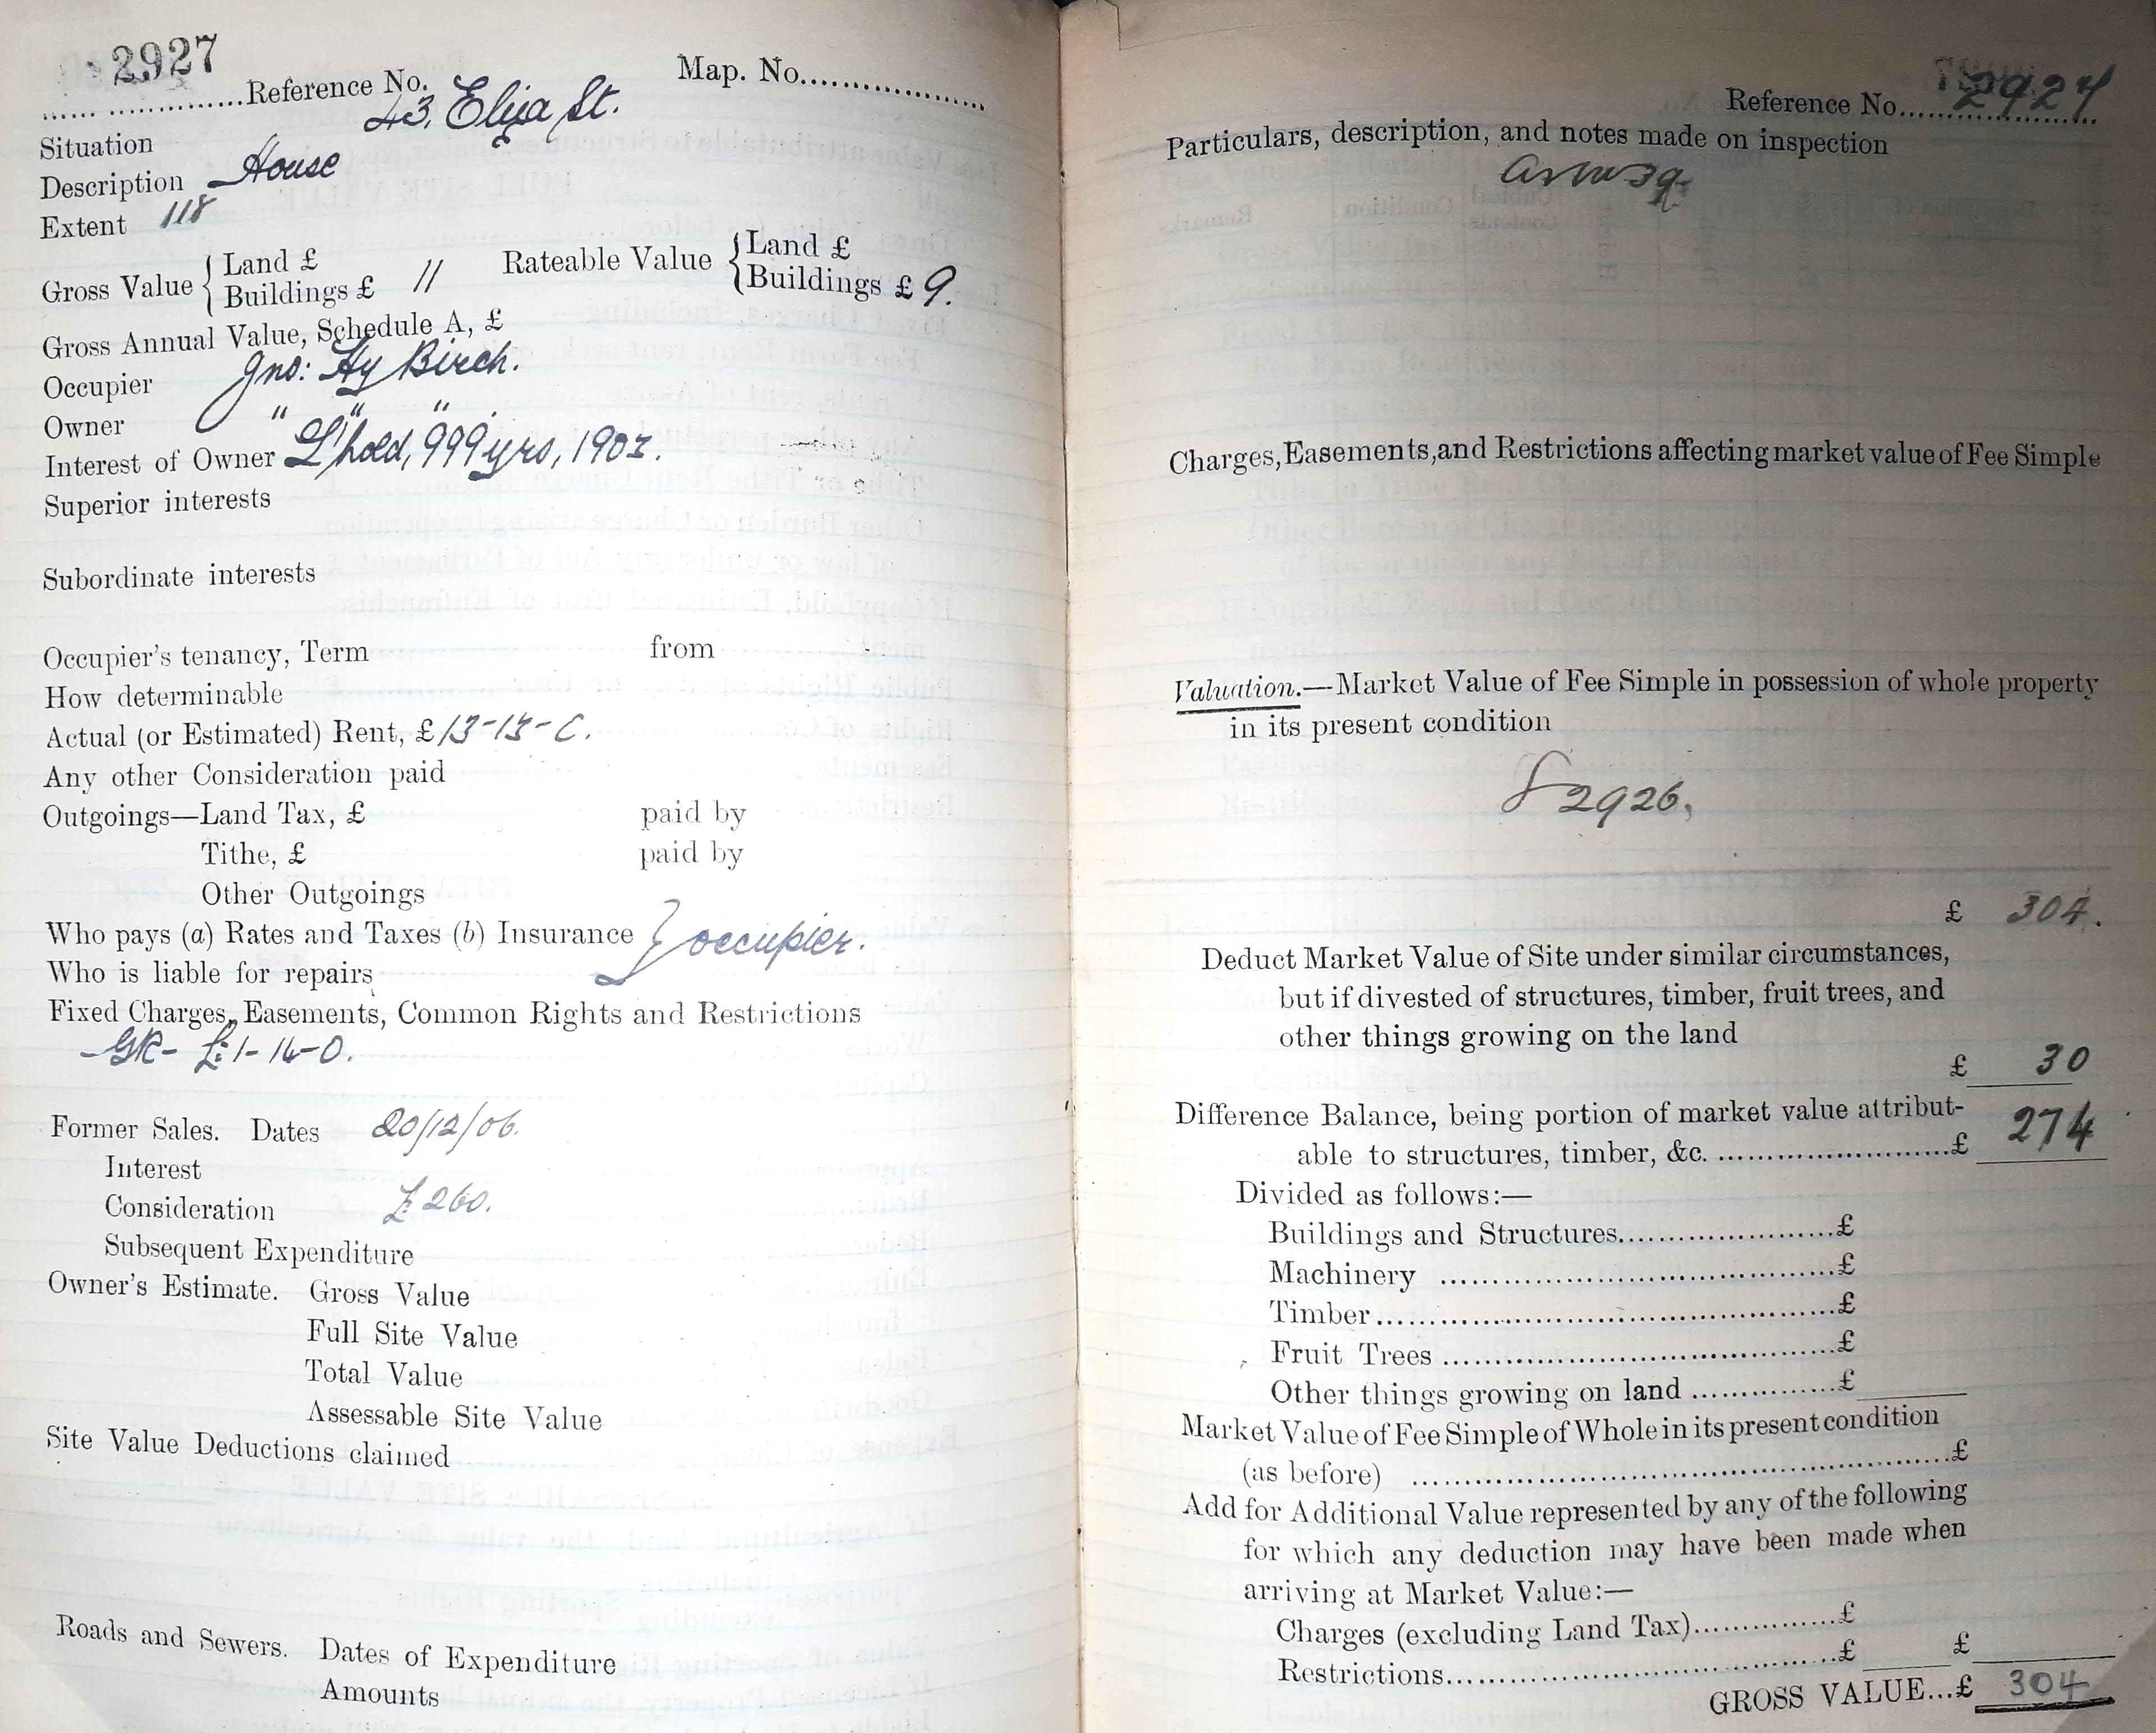 2927
.................Reference No. Map. No..................
Situation 43, Eliza St.
Description House
Extent 118
Gross Value { Land £
Buildings £ 11
Rateable Value { Land £
Buildings £ 9.
Gross Annual Value, Schedule A, £
Occupier Jno: Hy Birch.
Owner " " "
Interest of Owner L'hold, 999 yrs, 1903.
Superior interests
Subordinate interests
Occupier's tenancy, Term from
How determinable
Actual (or Estimated) Rent, £ 13-13-0.
Any other Consideration paid
Outgoings—Land Tax, £ paid by
Tithe, £ paid by
Other Outgoings
Who pays (a) Rates and Taxes (b) Insurance } occupier.
Who is liable for repairs
Fixed Charges, Easements, Common Rights and Restrictions
GR- £1-14-0.
Former Sales. Dates 20/12/06.
Interest
Consideration £260.
Subsequent Expenditure
Owner's Estimate. Gross Value
Full Site Value
Total Value
Assessable Site Value
Site Value Deductions claimed
Roads and Sewers. Dates of Expenditure
Amounts
Reference No. 2927
Particulars, description, and notes made on inspection
Charges, Easements, and Restrictions affecting market value of Fee Simple
Valuation.—Market Value of Fee Simple in possession of whole property
in its present condition
2926,
£ 304.
Deduct Market Value of Site under similar circumstances,
but if divested of structures, timber, fruit trees, and
other things growing on the land
£ 30
Difference Balance, being portion of market value attribut-
able to structures, timber, &c. ..........................£ 274
Divided as follows:—
Buildings and Structures......................£
Machinery ......................................£
Timber.............................................£
Fruit Trees ......................................£
Other things growing on land ...............£
Market Value of Fee Simple of Whole in its present condition
(as before) ....................................................£
Add for Additional Value represented by any of the following
for which any deduction may have been made when
arriving at Market Value:—
Charges (excluding Land Tax)..............£
Restrictions......................................£ £
GROSS VALUE...£ 304